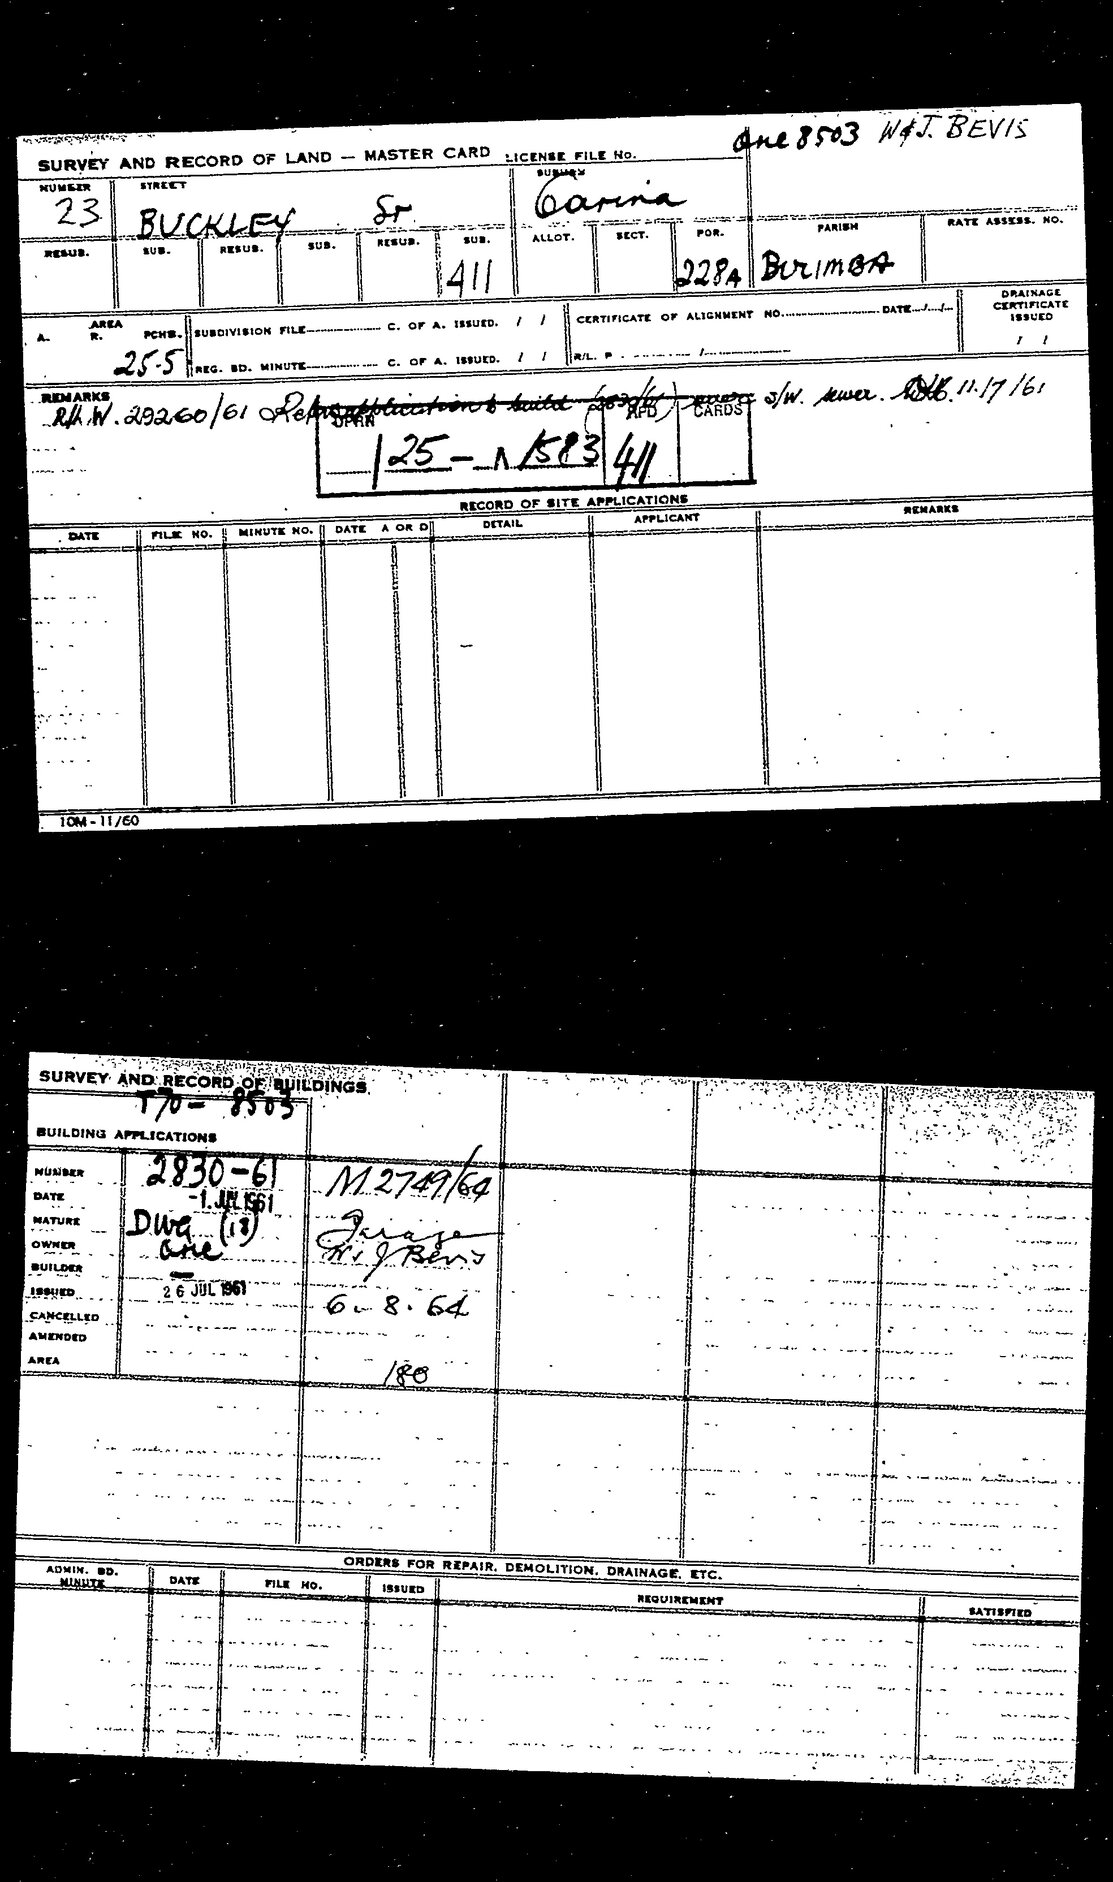 QHC 8503 W & J. BEVIS
SURVEY AND RECORD OF LAND — MASTER CARD LICENSE FILE No.
NUMBER STREET SUBURB
23 BUCKLEY St Carina
RESUB. SUB. RESUB. SUB. RESUB. SUB. ALLOT. SECT. POR. PARISH RATE ASSESS. NO.
411 228A BULIMBA
A. AREA R. PCHS. SUBDIVISION FILE C. OF A. ISSUED. / / CERTIFICATE OF ALIGNMENT NO. DATE / / DRAINAGE CERTIFICATE ISSUED
25·5 REG. BD. MINUTE C. OF A. ISSUED. / / R/L. P / / /
REMARKS
29260/61 application to build (2830/61) S/W. sewer. 11/7/61
UPRN RPD CARDS
125 — 1583 411
RECORD OF SITE APPLICATIONS
DATE FILE NO. MINUTE NO. DATE A OR D DETAIL APPLICANT REMARKS
10M - 11/60
SURVEY AND RECORD OF BUILDINGS
T70 — 8503
BUILDING APPLICATIONS
NUMBER 2830-61 M 2749/64
DATE -1. JUL 1961
NATURE Dwg (18) Garage
OWNER QHC W & J Bevis
BUILDER —
ISSUED 26 JUL 1961 6 - 8 . 64
CANCELLED
AMENDED
AREA 180
ORDERS FOR REPAIR, DEMOLITION, DRAINAGE, ETC.
ADMIN. BD. MINUTE DATE FILE NO. ISSUED REQUIREMENT SATISFIED